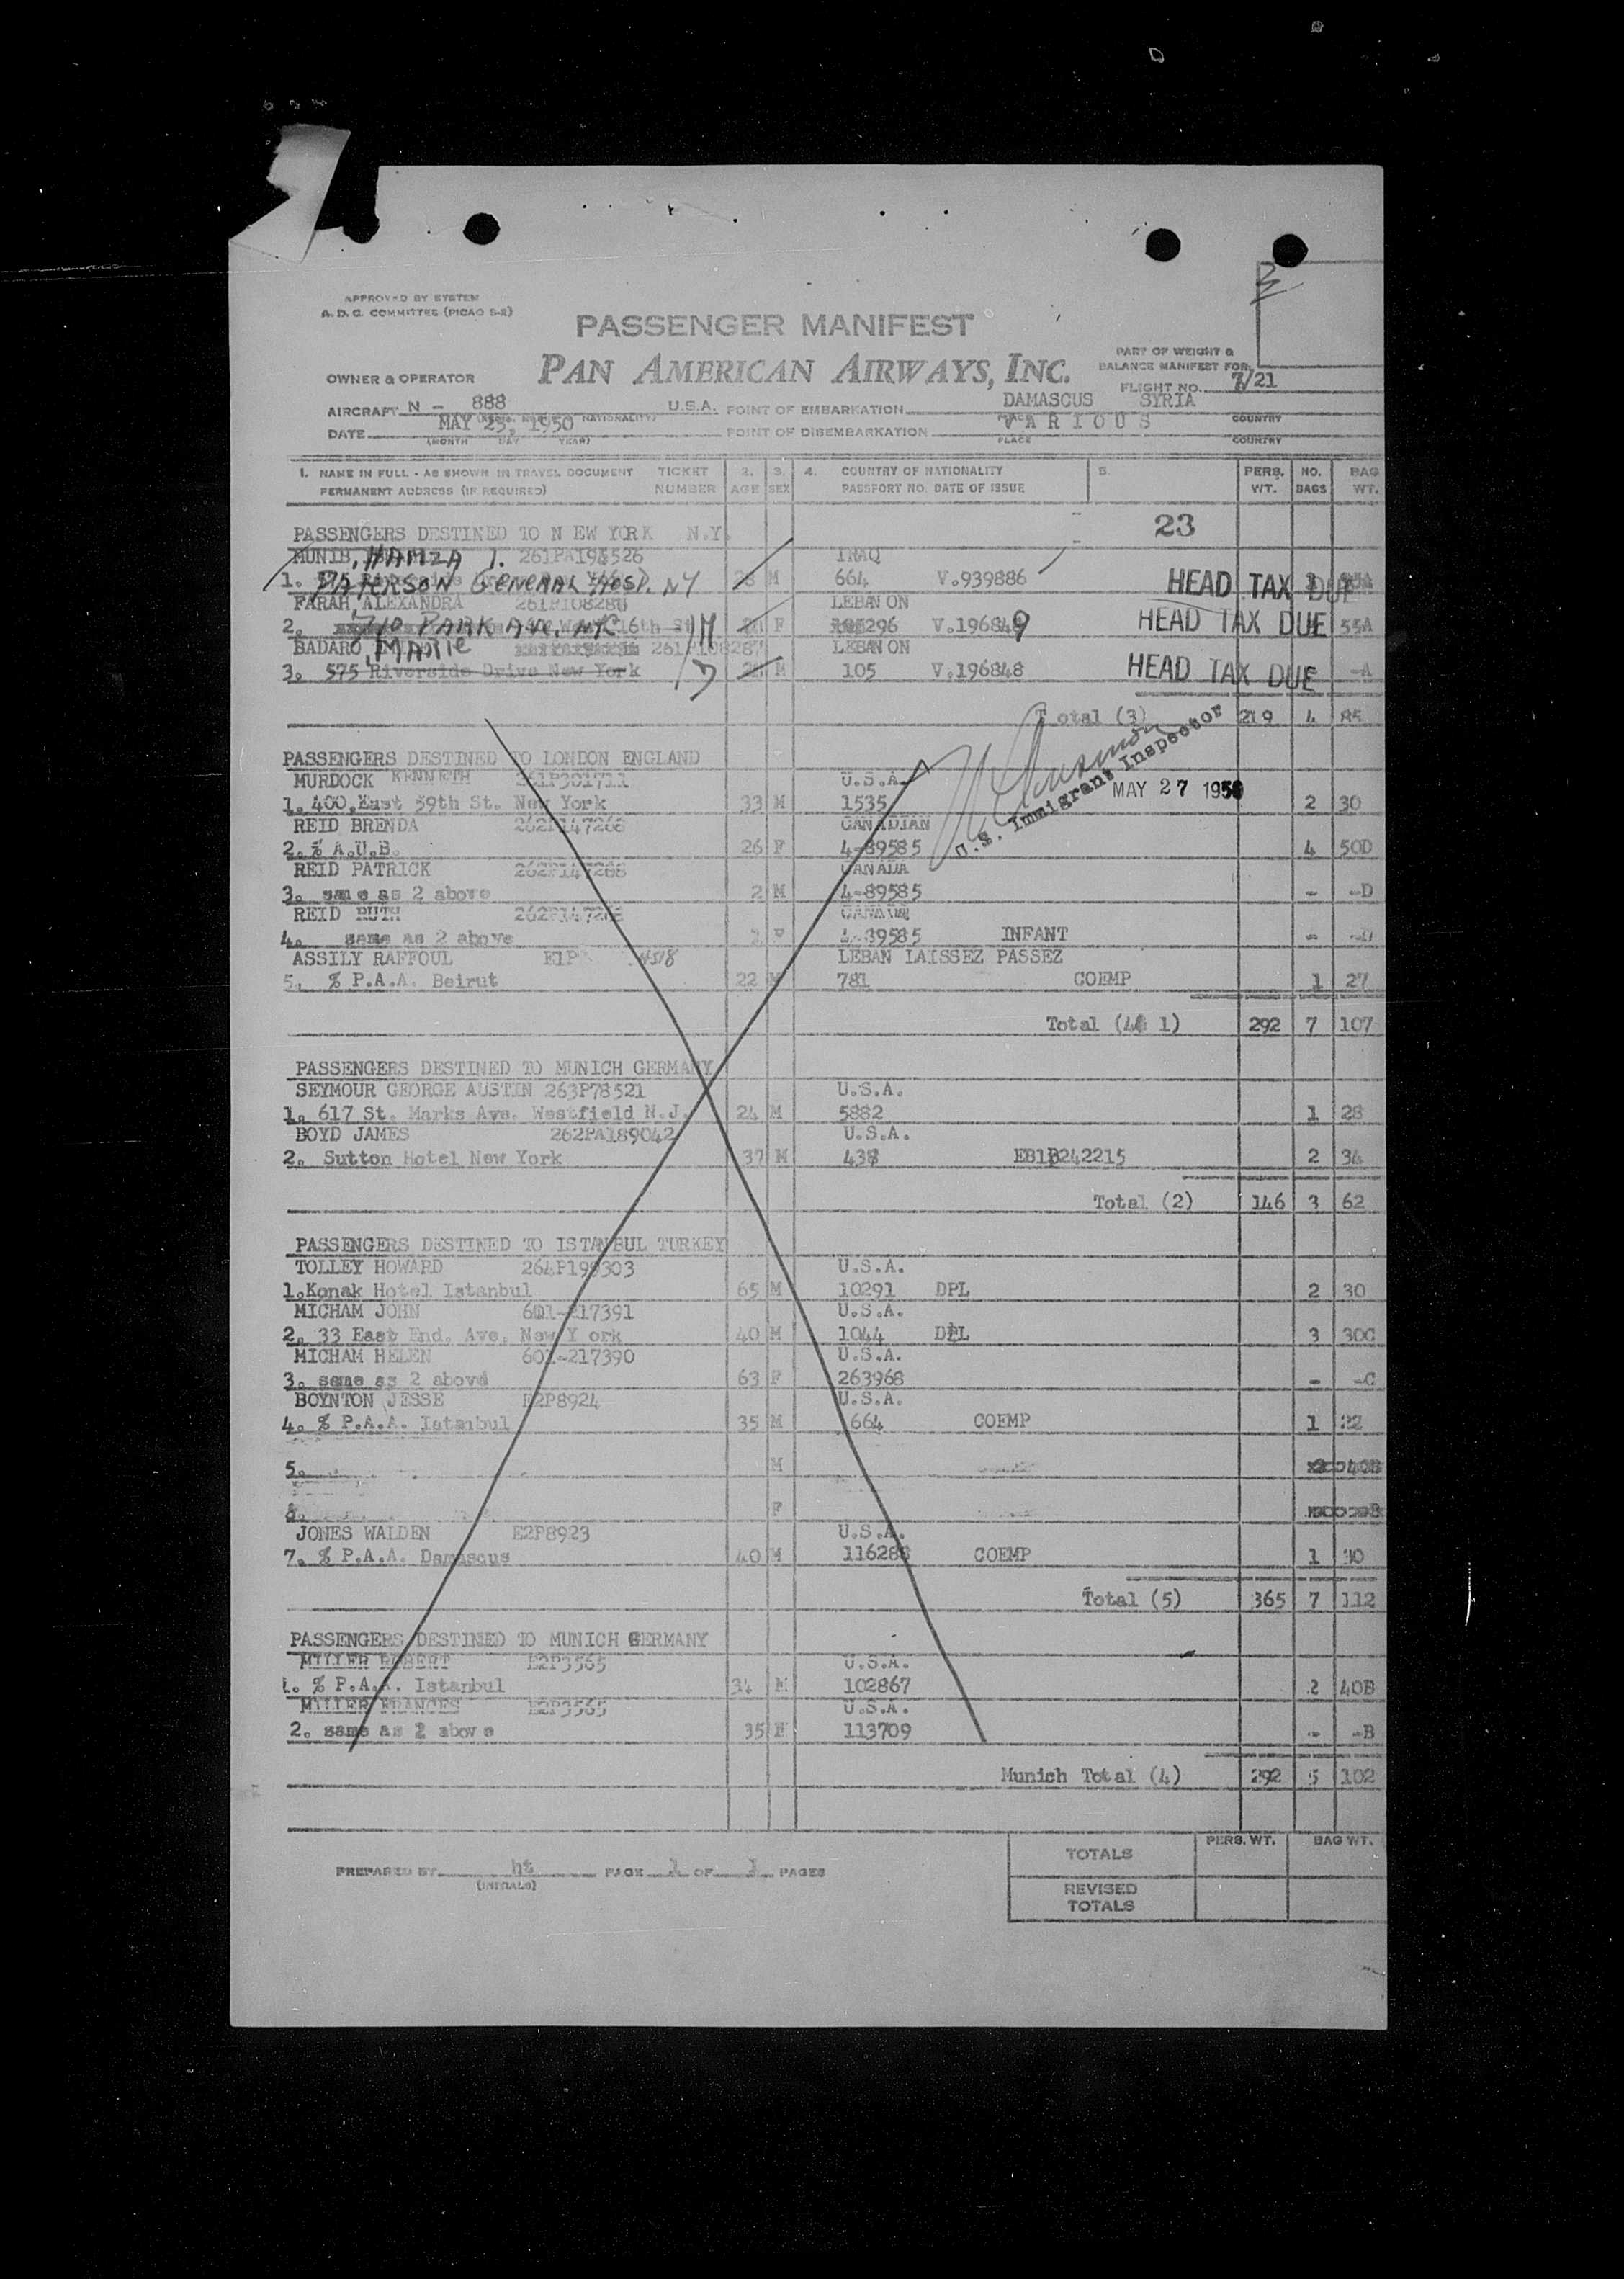 APPROVED BY SYSTEM
A. D. C. COMMITTEE (PICAO S-2)
PASSENGER MANIFEST
PAN AMERICAN AIRWAYS, INC.
OWNER & OPERATOR
PART OF WEIGHT &
BALANCE MANIFEST FOR
FLIGHT NO. /21
AIRCRAFT N - 888 U.S.A. POINT OF EMBARKATION DAMASCUS SYRIA
NATIONALITY) PLACE COUNTRY
DATE MAY 25, 1950 POINT OF DISEMBARKATION V A R I O U S
(MONTH DAY YEAR) PLACE COUNTRY
1. NAME IN FULL - AS SHOWN IN TRAVEL DOCUMENT TICKET 2. 3. 4. COUNTRY OF NATIONALITY 5. PERS. NO. BAG
PERMANENT ADDRESS (IF REQUIRED) NUMBER AGE SEX PASSPORT NO. DATE OF ISSUE WT. BAGS WT.
PASSENGERS DESTINED TO N EW YORK N.Y. 23
MUNIB, HAMZA I. IRAQ
1. PATERSON GENERAL HOSP. NJ M 664 V.939886 HEAD TAX DUE
FARAH, ALEXANDRA LEBANON
2. 710 PARK AVE, NYC F V.196849 HEAD TAX DUE 55A
BADARO, MARIE LEBANON
3. 575 Riverside Drive New York M 105 V.196848 HEAD TAX DUE -A
Total (3) 219 4 85
U.S. Immigrant Inspector
MAY 27 1950
PASSENGERS DESTINED TO LONDON ENGLAND
MURDOCK KENNETH 261P301711 U.S.A.
1. 400, East 59th St. New York 33 M 1535 2 30
REID BRENDA 262P147268 CANADIAN
2. % A.U.B. 26 F 4-89585 4 50D
REID PATRICK 262P147268 CANADA
3. same as 2 above 2 M 4-89585 - -D
REID RUTH CANADA
4. same as 2 above 4-89585 INFANT - -D
ASSILY RAFFOUL E1P LEBAN LAISSEZ PASSEZ
5. % P.A.A. Beirut 22 M 781 COEMP 1 27
Total (4& 1) 292 7 107
PASSENGERS DESTINED TO MUNICH GERMANY
SEYMOUR GEORGE AUSTIN 263P78521 U.S.A.
1. 617 St. Marks Ave. Westfield N.J. 24 M 5882 1 28
BOYD JAMES 262PA189042 U.S.A.
2. Sutton Hotel New York 37 M EB1B242215 2 34
Total (2) 146 3 62
PASSENGERS DESTINED TO ISTANBUL TURKEY
TOLLEY HOWARD 264P U.S.A.
1. Konak Hotel Istanbul 65 M 10291 DPL 2 30
MICHAM JOHN 601-217391 U.S.A.
2. 33 East End. Ave. New Y ork 40 M 1044 DPL 3 30C
MICHAM HELEN 601-217390 U.S.A.
3. same as 2 above 63 F 263968 - -C
BOYNTON JESSE E2P8924 U.S.A.
4. % P.A.A. Istanbul 35 M 664 COEMP 1 22
5. M
F
JONES WALDEN E2P8923 U.S.A.
7. % P.A.A. Damascus 40 M 116288 COEMP 1 30
Total (5) 365 7 112
PASSENGERS DESTINED TO MUNICH GERMANY
MILLER ROBERT E2P3565 U.S.A.
1. % P.A.A. Istanbul 34 M 102867 2 40B
MILLER FRANCES E2P3565 U.S.A.
2. same as 1 above 35 F 113709 - -B
Munich Total (4) 292 5 102
PREPARED BY ht PAGE 1 OF 1 PAGES
(INITIALS)
PERS. WT. BAG WT.
TOTALS
REVISED
TOTALS